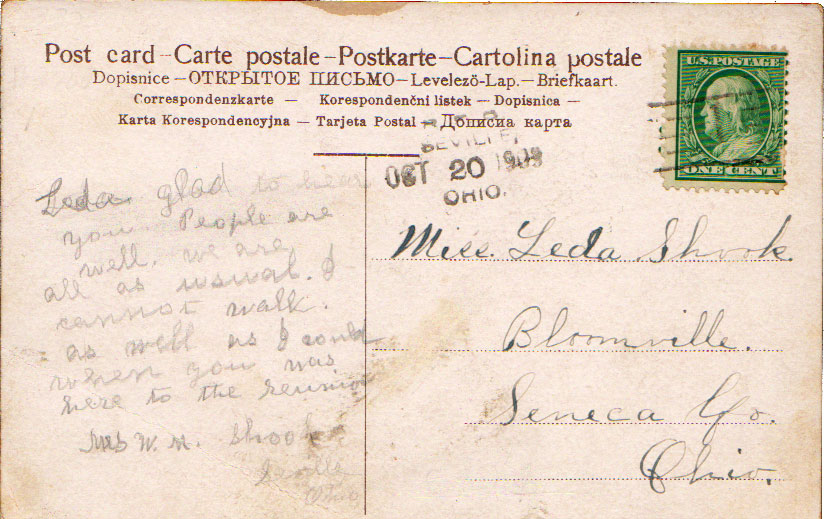 Post card – Carte postale – Postkarte – Cartolina postale
Dopisnice – ОТКРЫТОЕ ПИСЬМО – Levelező-Lap. – Briefkaart.
Correspondenzkarte — Korespondenční listek — Dopisnica —
Karta Korespondencyjna — Tarjeta Postal — Дописна карта
U.S. POSTAGE
ONE CENT
SEVILLE,
OCT 20 1909
OHIO.
Leda glad to hear
you People are
well. we are
all as usual. I
cannot walk.
as well as I could
when you was
here to the reunion
Mrs W. H. Shook
Seville
Ohio
Miss. Leda Shook.
Bloomville.
Seneca Co.
Ohio.